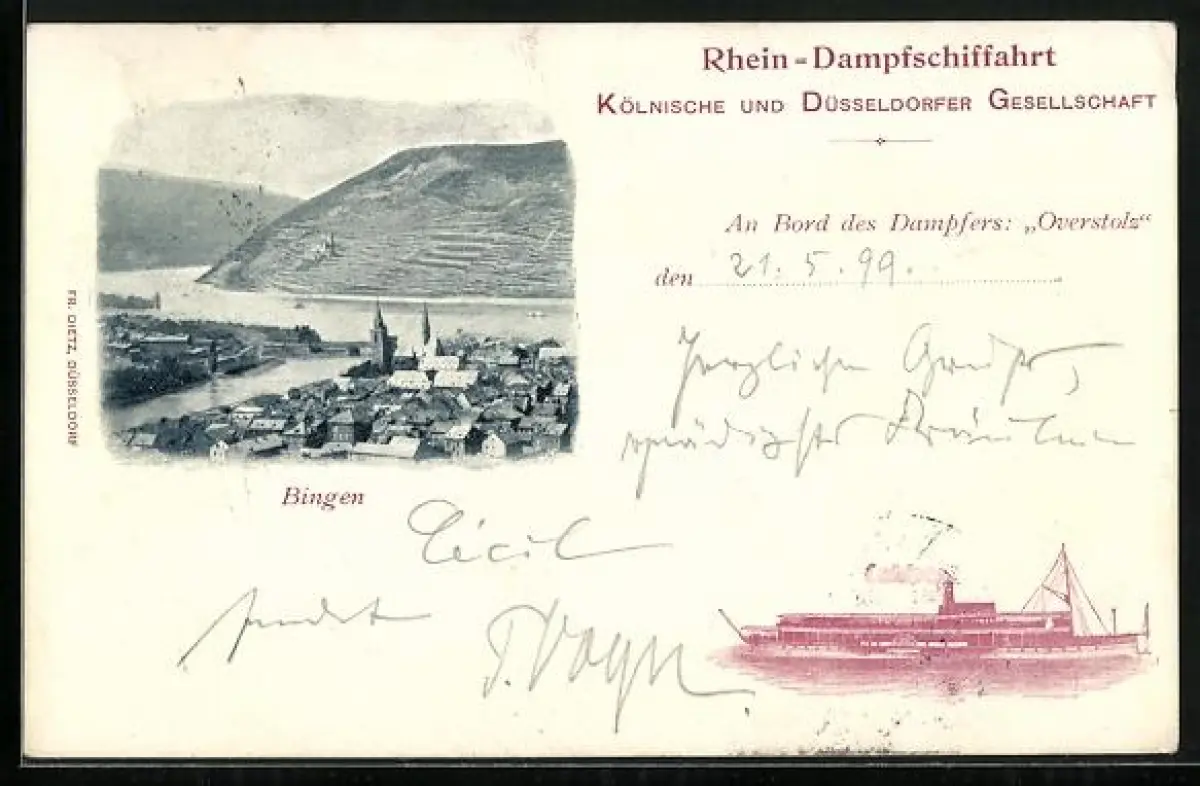 Rhein-Dampfschiffahrt
KÖLNISCHE UND DÜSSELDORFER GESELLSCHAFT
An Bord des Dampfers: „Overstolz“
den 21. 5. 99.
Herzlichen Gruß,
gnädigstes Fräulein
Bingen
Cécil
sendet
FR. DIETZ, DÜSSELDORF